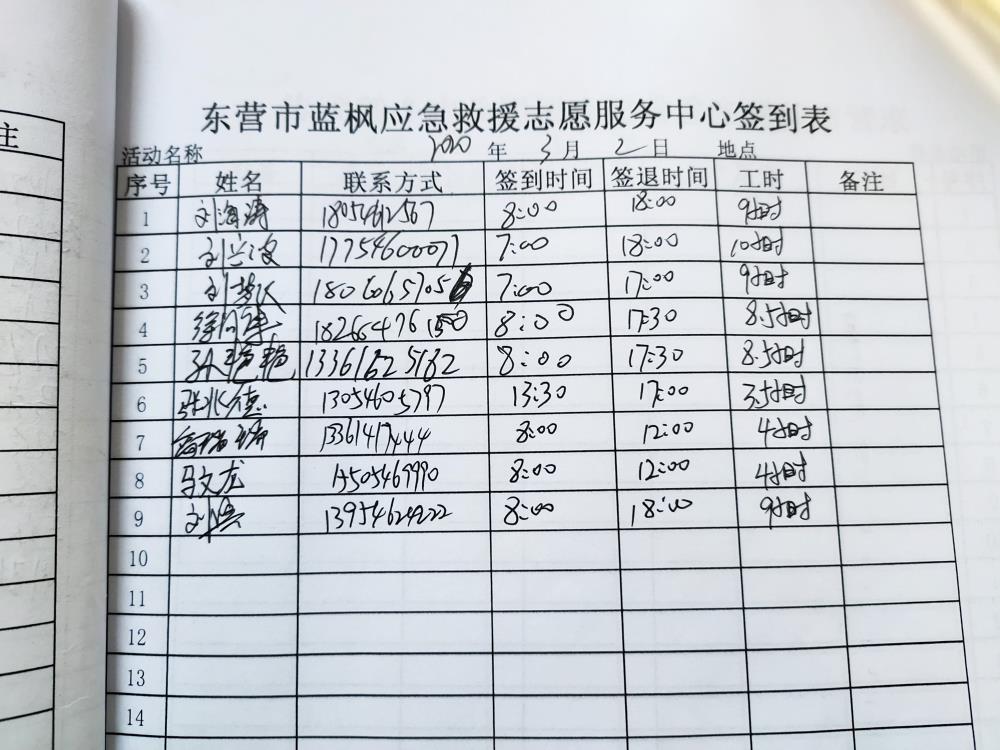 主
东营市蓝枫应急救援志愿服务中心签到表
活动名称 2020 年 3 月 2 日 地点
序号 姓名 联系方式 签到时间 签退时间 工时 备注
1 刘海涛 8:00 18:00 9小时
2 刘兴波 17754600077 7:00 18:00 10小时
3 7:00 17:00 9小时
4 8:00 17:30 8.5小时
5 孙艳艳 13361625182 8:00 17:30 8.5小时
6 张兆德 13054605797 13:30 17:00 3.5小时
7 8:00 12:00 4小时
8 马文龙 15505469990 8:00 12:00 4小时
9 13954624222 8:00 18:00 9小时
10
11
12
13
14